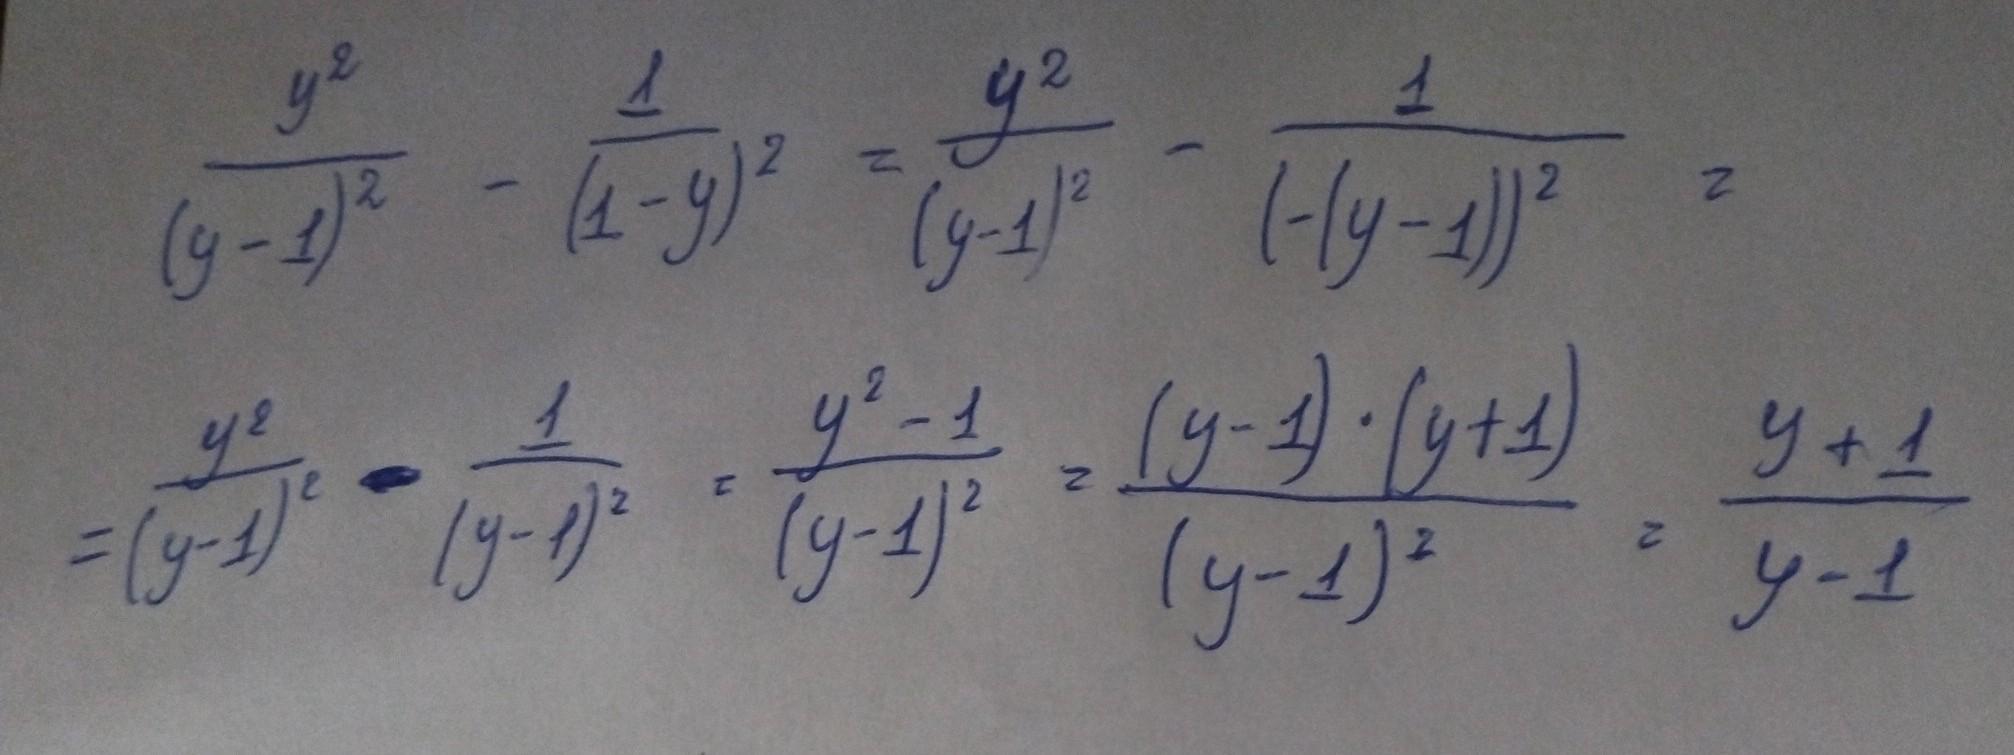 y²/(y-1)² - 1/(1-y)² = y²/(y-1)² - 1/(-(y-1))² =
= y²/(y-1)² - 1/(y-1)² = y²-1/(y-1)² = (y-1)·(y+1)/(y-1)² = y+1/y-1